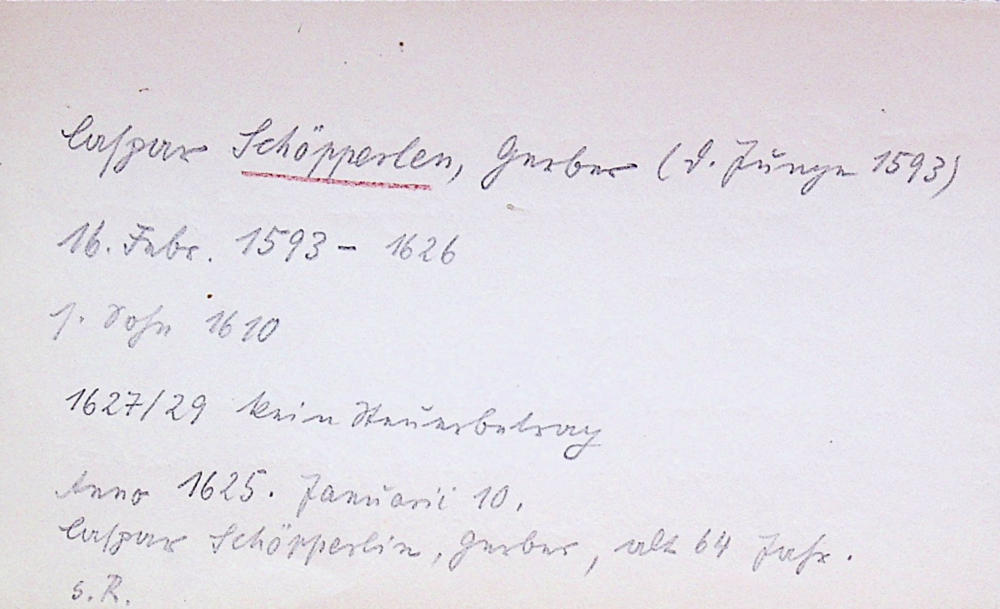 Caspar Schöpperlen, Gerber (d. Junge 1593)
16. Febr. 1593 - 1626
s. Sohn 1610
1627/29 kein Steuerbetrag
Anno 1625. Januarii 10.
Caspar Schöpperlin, Gerber, alt 64 Jahr.
s. R.